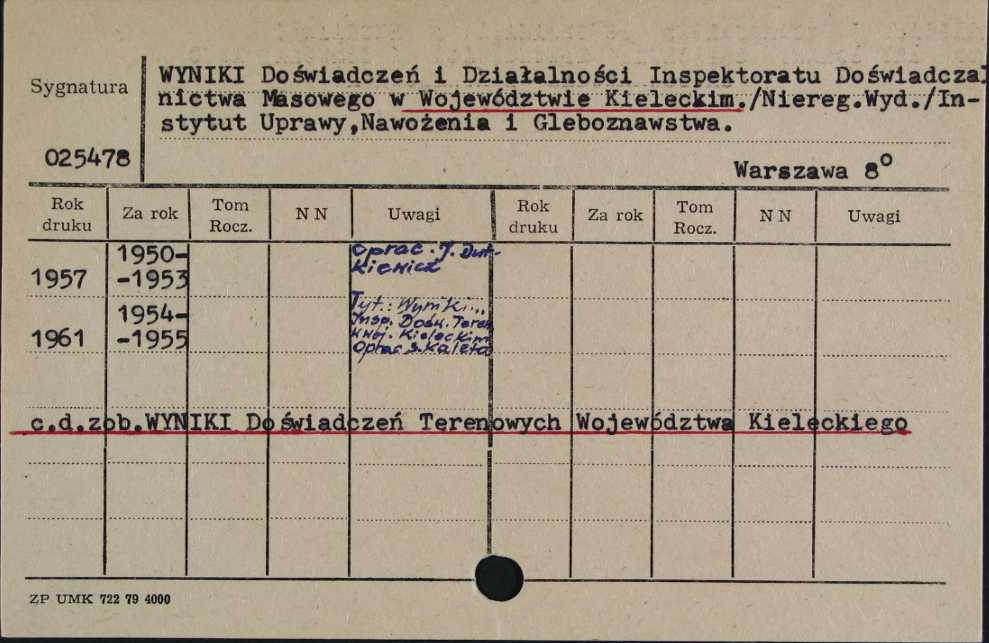 WYNIKI Doświadczeń i Działalności Inspektoratu Doświadczal
Sygnatura
nictwa Masowego w Województwie Kieleckim./Niereg.Wyd./In-
stytut Uprawy,Nawożenia i Gleboznawstwa.
025478
Warszawa 8°
Rok druku Za rok Tom Rocz. NN Uwagi Rok druku Za rok Tom Rocz. NN Uwagi
1957 1950- -1953 Oprac. J. Dut-
kiewicz
1961 1954- -1955 Tyt.: Wyniki...
Insp. Dośw. Teren
w woj. Kieleckim
Oprac S. Kaleta
c.d.zob.WYNIKI Doświadczeń Terenowych Województwa Kieleckiego
ZP UMK 722 79 4000